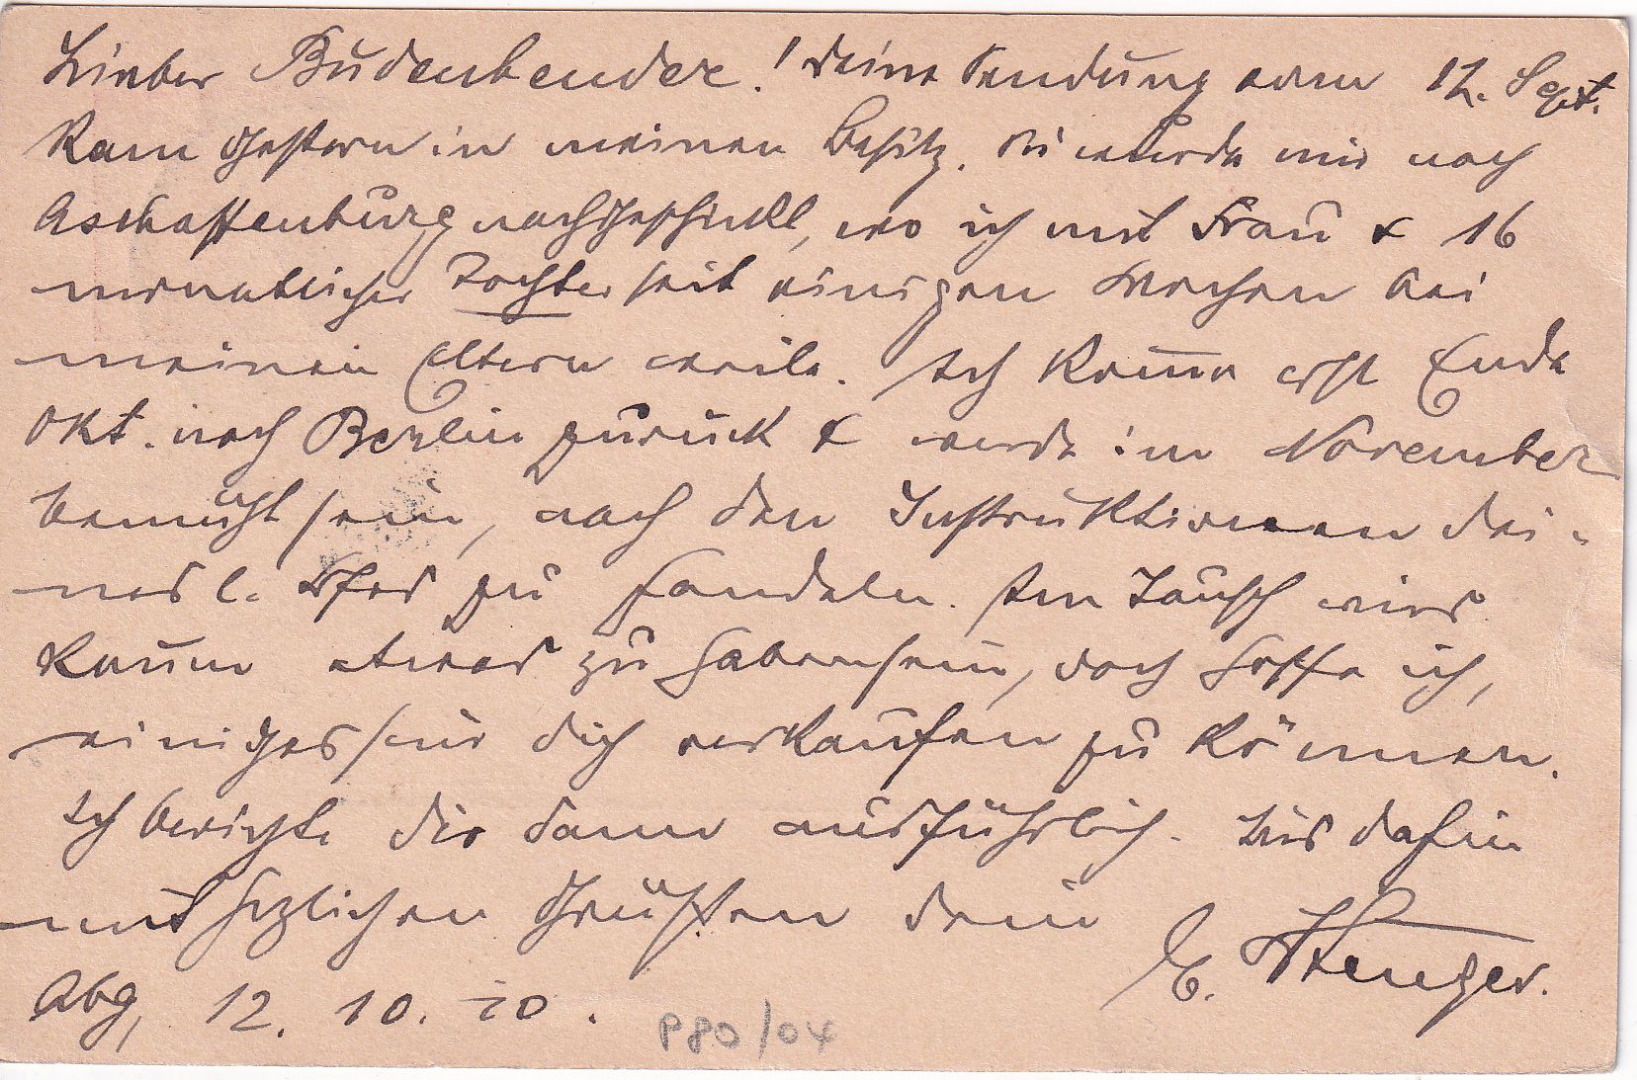 Lieber Büdenbender! Deine Sendung vom 12. Sept.
kam gestern in meinen Besitz. Sie wurde mir nach
Aschaffenburg nachgeschickt, wo ich mit Frau & 16
monatlicher Tochter seit einigen Wochen bei
meinen Eltern weile. Ich komme erst Ende
Okt. nach Berlin zurück & werde im November
bemüht sein, nach den Instruktionen dei-
nes l. zu handeln. Im Tausch wird
kaum etwas zu haben sein, doch hoffe ich,
einiges für dich verkaufen zu können.
Ich berichte dir dann ausführlich. Bis dahin
mit herzlichen Grüßen dein
E. Stenger.
Abg, 12. 10. 20.
P80/04